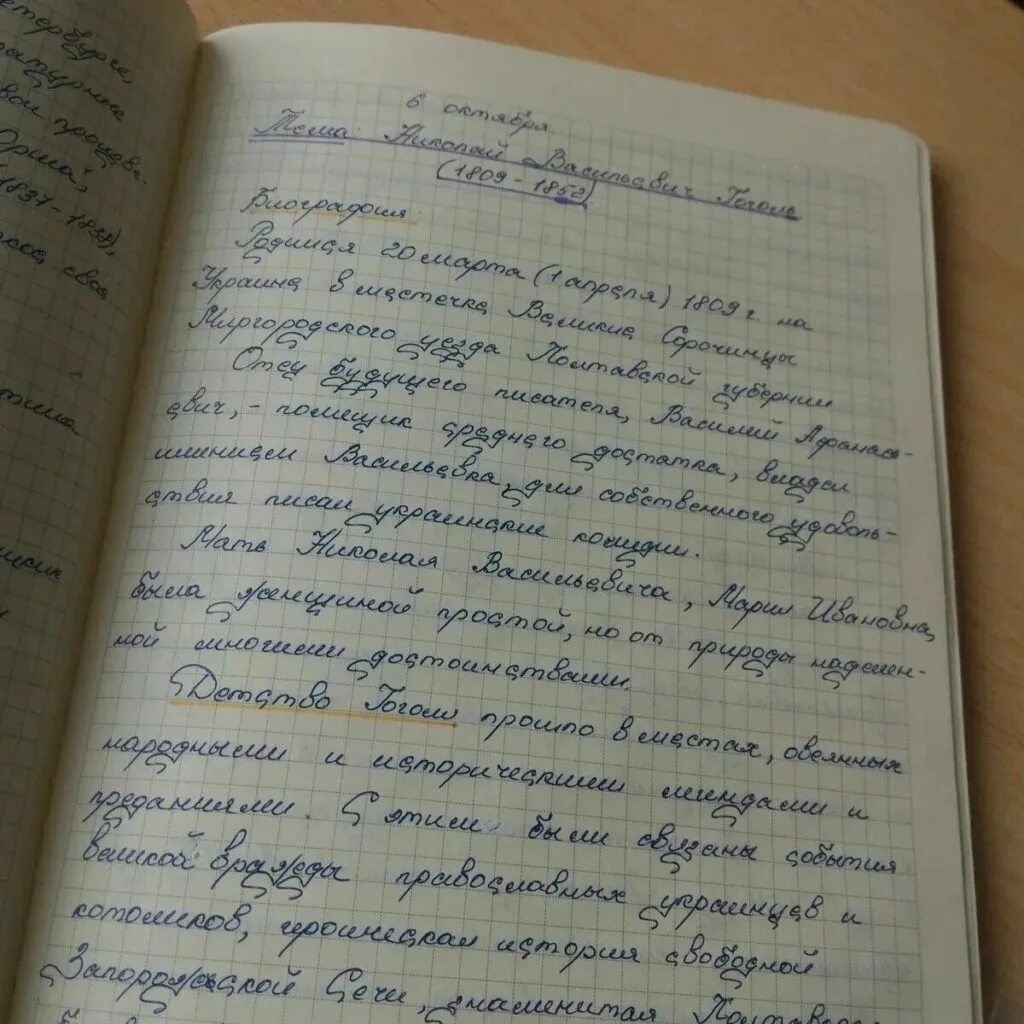 етербурге,
ратурные
Орша",
1837-1838),
6 октября.
Тема: Николай Васильевич Гоголь
(1809-1852).
Биография:
Родился 20 марта (1 апреля) 1809 г. на
Украине в местечке Великие Сорочинцы
Миргородского уезда Полтавской губернии
Отец будущего писателя, Василий Афанась-
евич, - помещик среднего достатка, владел
имением Васильевка, для собственного удоволь-
ствия писал украинские комедии.
Мать Николая Васильевича, Мария Ивановна,
была женщиной простой, но от природы наделен-
ной многими достоинствами.
Детство Гоголя прошло в местах, овеянных
народными и историческими легендами и
преданиями. С этим были связаны события
великой вражды православных украинцев и
католиков, героическая история свободной
Запорожской Сечи, знаменитая Полтавск